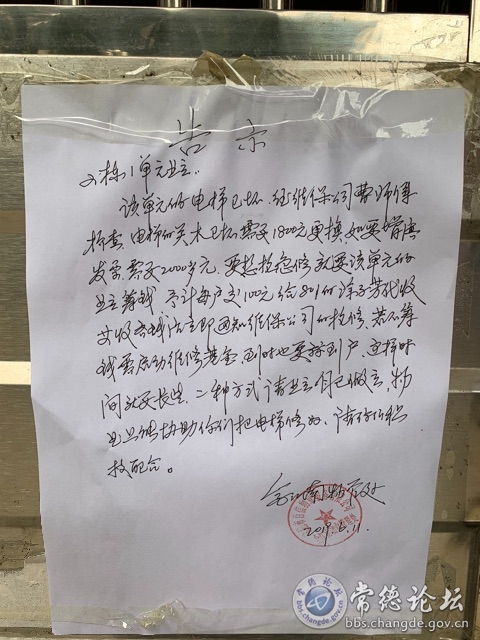 告示
2栋1单元业主:
该单元的电梯已坏、经维保公司曹师傅
检查、电梯的关木已坏需要1800元更换、如要增值
发票、需要2000多元、要想抢急修就要该单元的
业主筹钱、予计每户交100元给801的涂子芳代收
收齐钱后立即通知维保公司的抢修、若不筹
钱要启动维修基金、到时也要签到户、这样时
间就要长些、二种方式请业主自己做主、物
业只能协助你们把电梯修好、请你们积
极配合。
物业处
2019.6.11.
常德论坛
bbs.changde.gov.cn